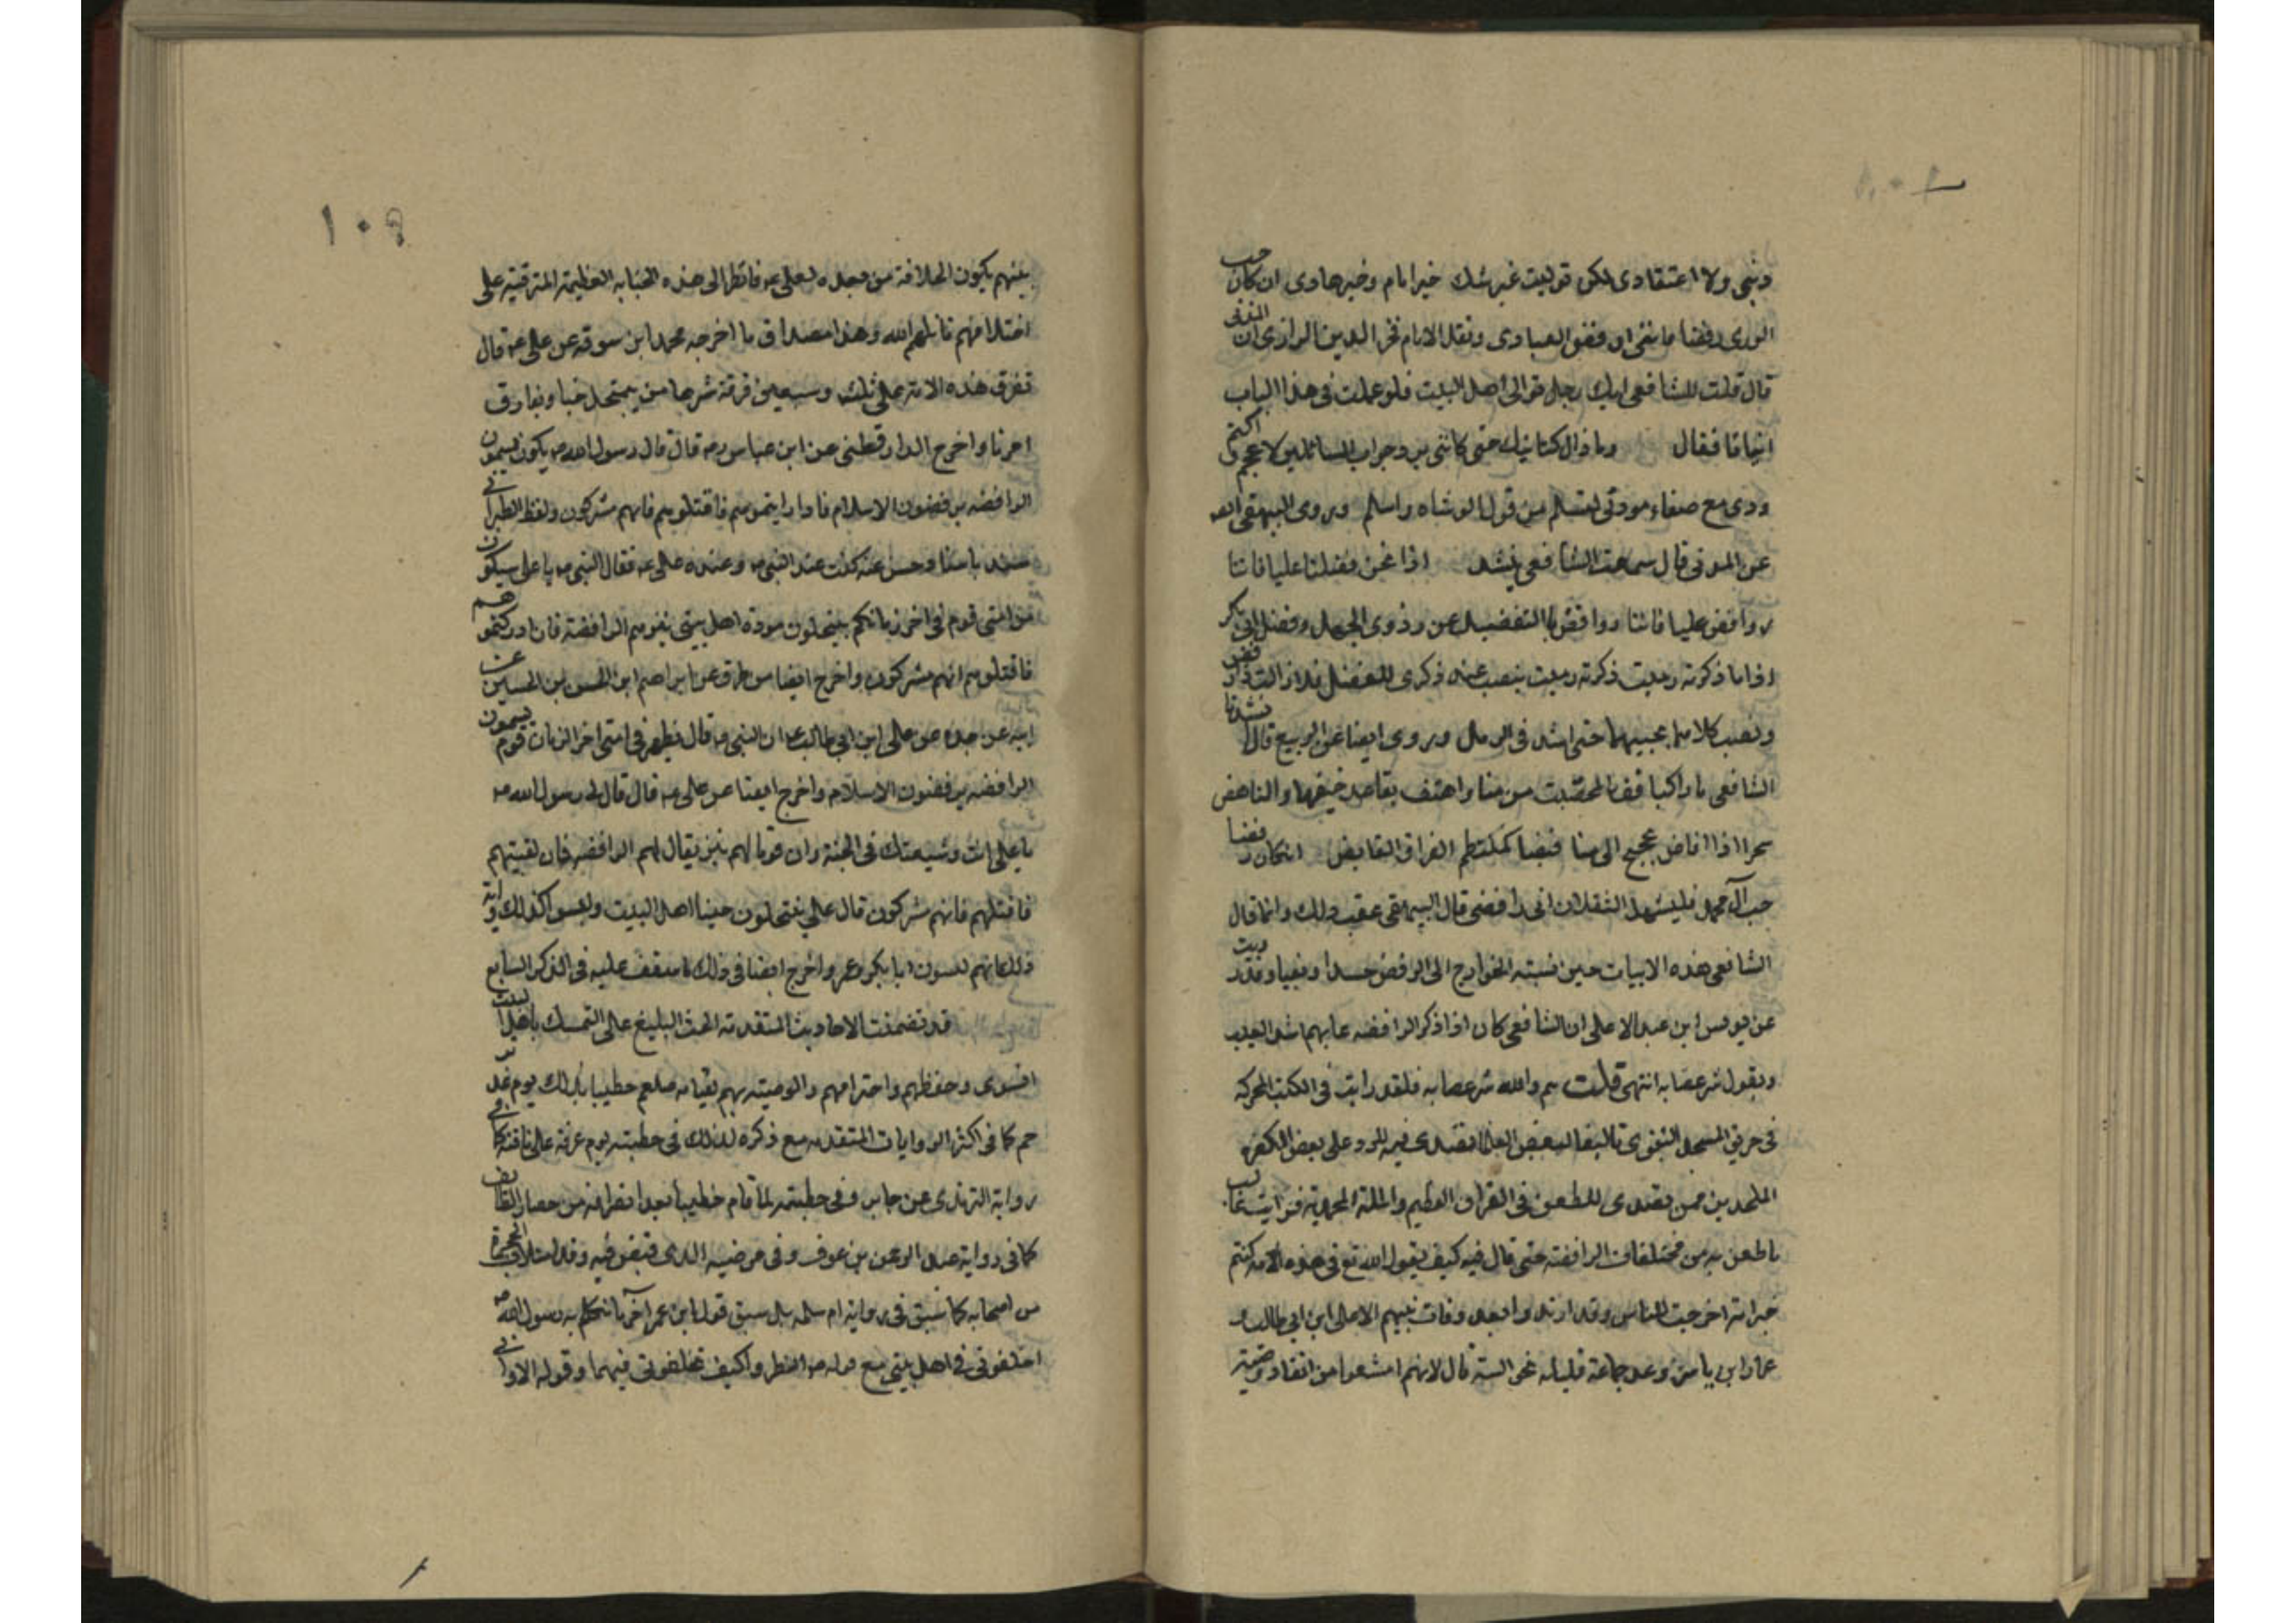 دينی ولا اعتقادی لكن توليت غير شك خير امام وخير هادی ان كان حب
الوری رفضا ما ننی ارفض العبادی ونقل الامام فخر الدين الرازی ان المزنی
قال قلت للشافعی انك رجل توالی اهل البيت فلو عملت فی هذا الباب
ابياتا فقال وما ذال كتمانيك حتی كاننی برد جواب السائلين لاعجم اكتم
ودی مع صفاء مودتی لتسلم من قول الوشاه واسلم وروی البيهقی ايضا
عن المزنی قال سمعت الشافعی ينشد اذا نحن فضلنا عليا فاننا
روافض عليا فاننا روافض بالتفضيل عن ذوی الجهل وفضل ابی بكر
اذا ما ذكرته رميت ذكرته رميت بنصب عند ذكری للفضل فلا زالت ذا رفض
ونصب كلاهما بحبيهما حتی اشد فی الرمل وروی ايضا عن الربيع قال انشدنا
الشافعی يا راكبا قف بالمحصب من منا واهتف بقاعد خيفها والناهض
سحرا اذا افاض حجيج الی منا فيضا كملتطم الفرات الفايض ان كان رفضا
حب آل محمد فليشهد الثقلان انی رافضی قال البيهقی عقب ذلك وانما قال
الشافعی هذه الابيات حين نسبته الخوارج الی الرفض حسدا وبغيا وقد رويت
عن يونس ابن عبد الاعلی ان الشافعی كان اذا ذكر الرافضه عابهم اشد العيب
ويقول شر عصابه انتهی قلت هم والله شر عصابه فلقد رايت فی الكتب المحركه
فی حريق المسجد النبوی تاليفا لبعض العلما تصدی فيه للرد علی بعض الكفره
الملحدين ممن تصدی للطعن فی القران العظيم والملة المحمدية فرايت غالب
ما طعن به من مختلقات الرافضة حتی قال فيه كيف يقول الله تع فی هذه الامه كنتم
خير امة اخرجت للناس وقد ارتدوا بعد وفات نبيهم الا علی ابن ابی طالب و
عمار ابن ياسر وعد جماعة قليله نحو الستة قال لانهم امتنعوا من انفاد وصيته
١٠٩
بينهم بكون الخلافة من بعده لعلی عه فانظر الی هذه الخبايه العظيمة المترقية علی
اختلافهم قاتلهم الله وهذا مصداق ما اخرجه محمد ابن سوقه عن علی عه قال
تفرق هذه الامة علی ثلث وسبعين فرقة شرها من ينتحل حبنا ويفارق
امرنا واخرج الدارقطنی عن ابن عباس ره قال قال رسول الله ص يكون يسمون
الرافضه يرفضون الاسلام فاذا رايتموهم فاقتلوهم فانهم مشركون ولفظ الطبرانی
باسناد حسن عنه كنت عند النبی ص وعنده علی عه فقال النبی ص يا علی سيكون
من امتی قوم فی اخر زمانكم ينتحلون مودة اهل بيتی نبزهم الرافضة فان ادركتموهم
فاقتلوهم انهم مشركون واخرج ايضا من طرق عن ابراهيم ابن الحسن بن الحسين عن
ابيه عن جده عن علی ابن ابی طالب ع ان النبی ص قال يظهر فی امتی اخر الزمان قوم يسمون
الرافضه يرفضون الاسلام واخرج ايضا عن علی عه قال قال لی رسول الله ص
يا علی انت وشيعتك فی الجنة وان قوما لهم نبز يقال لهم الرافضه فان لقيتهم
فاقتلهم فانهم مشركون قال علی ينتحلون حبنا اهل البيت وليسوا كذلك واية
ذلك انهم يسبون ابا بكر وعمر واخرج ايضا فی ذلك ما ستقف عليه فی الذكر السابع
قد تضمنت الاحاديث المتقدمة الحث البليغ علی التمسك باهل البيت
النبوی وحفظهم واحترامهم والوصية بهم لقيامه صلعم خطيبا بذلك يوم غدير
خم كما فی اكثر الروايات المتقدمه مع ذكره لذلك فی خطبته يوم عرفة علی ناقته كما فی
رواية الترمذی عن جابر وفی خطبته لما قام خطيبا بعد انصرافه من حصار الطايف
كما فی رواية عبد الرحمن بن عوف وفی مرضه الذی قبض فيه وقد امتلات الحجرة
من اصحابه كما سبق فی رواية ام سلمه بل سبق قول ابن عمر آخر ما تكلم به رسول الله ص
اخلفونی فی اهل بيتی مع قوله ص انظروا كيف تخلفونی فيهما وقوله الا وانی